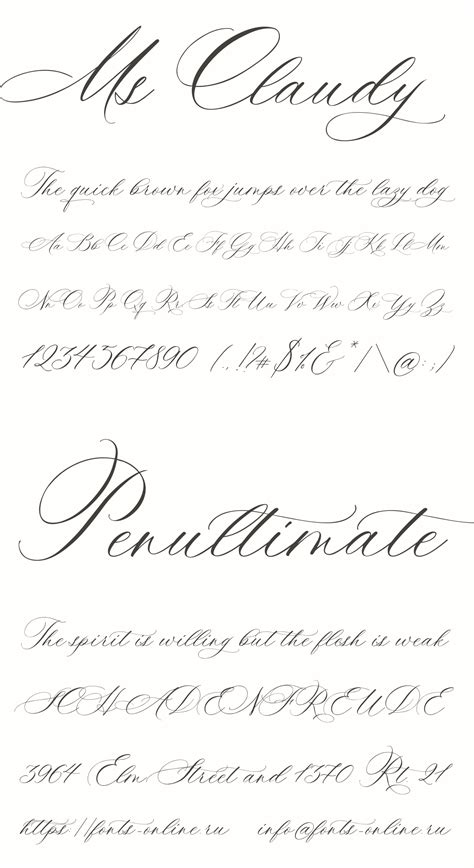 Ms Claudy
The quick brown fox jumps over the lazy dog
Aa Bb Cc Dd Ee Ff Gg Hh Ii Jj Kk Ll Mm
Nn Oo Pp Qq Rr Ss Tt Uu Vv Ww Xx Yy Zz
1234567890 (.,!?#$%&*/|\@:;)
Penultimate
The spirit is willing but the flesh is weak
SCHADENFREUDE
3964 Elm Street and 1370 Rt. 21
https://fonts-online.ru info@fonts-online.ru